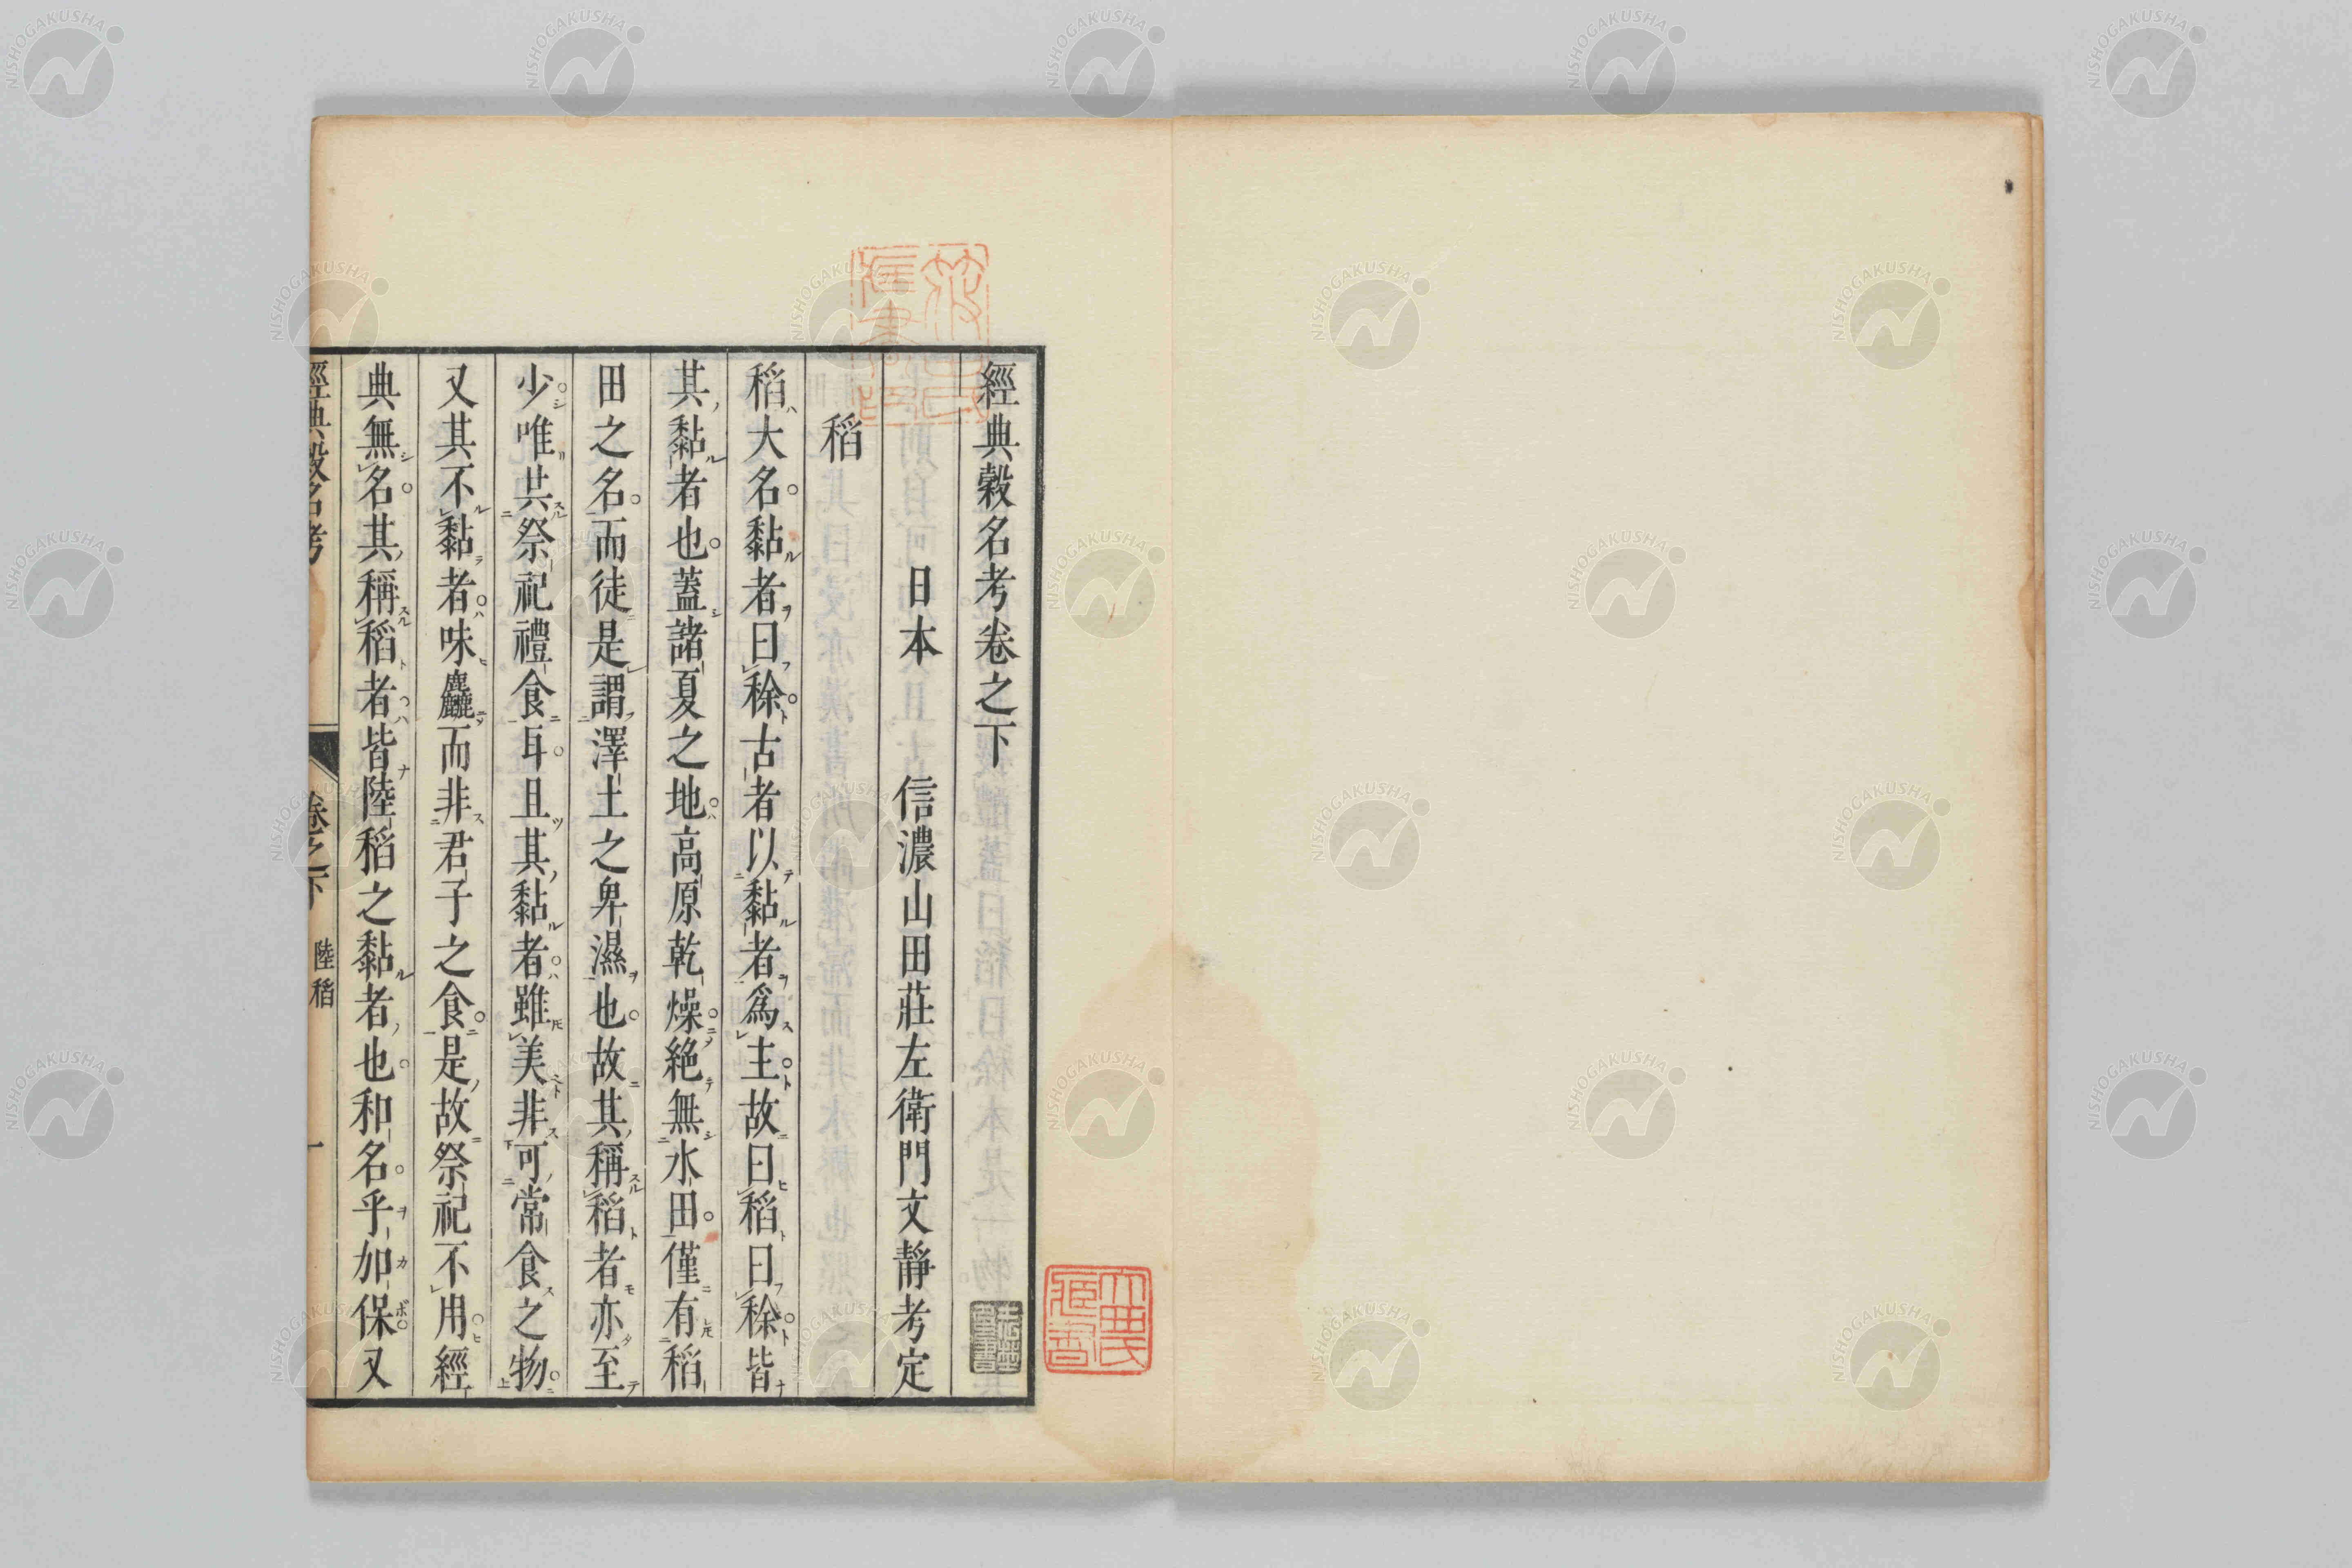 經典穀名考卷之下
日本 信濃山田莊左衛門文靜考定
稻
稻大名黏者曰稌古者以黏者爲主故曰稻曰稌皆
其黏者也蓋諸夏之地高原乾燥絶無水田僅有稻
田之名而徒是謂澤土之卑濕也故其稱稻者亦至
少唯共祭祀禮食耳且其黏者雖美非可常食之物
又其不黏者味麤而非君子之食是故祭祀不用經
典無名其稱稻者皆陸稻之黏者也和名乎加保又
經典穀名考 卷之下 陸稻 一
NISHOGAKUSHA